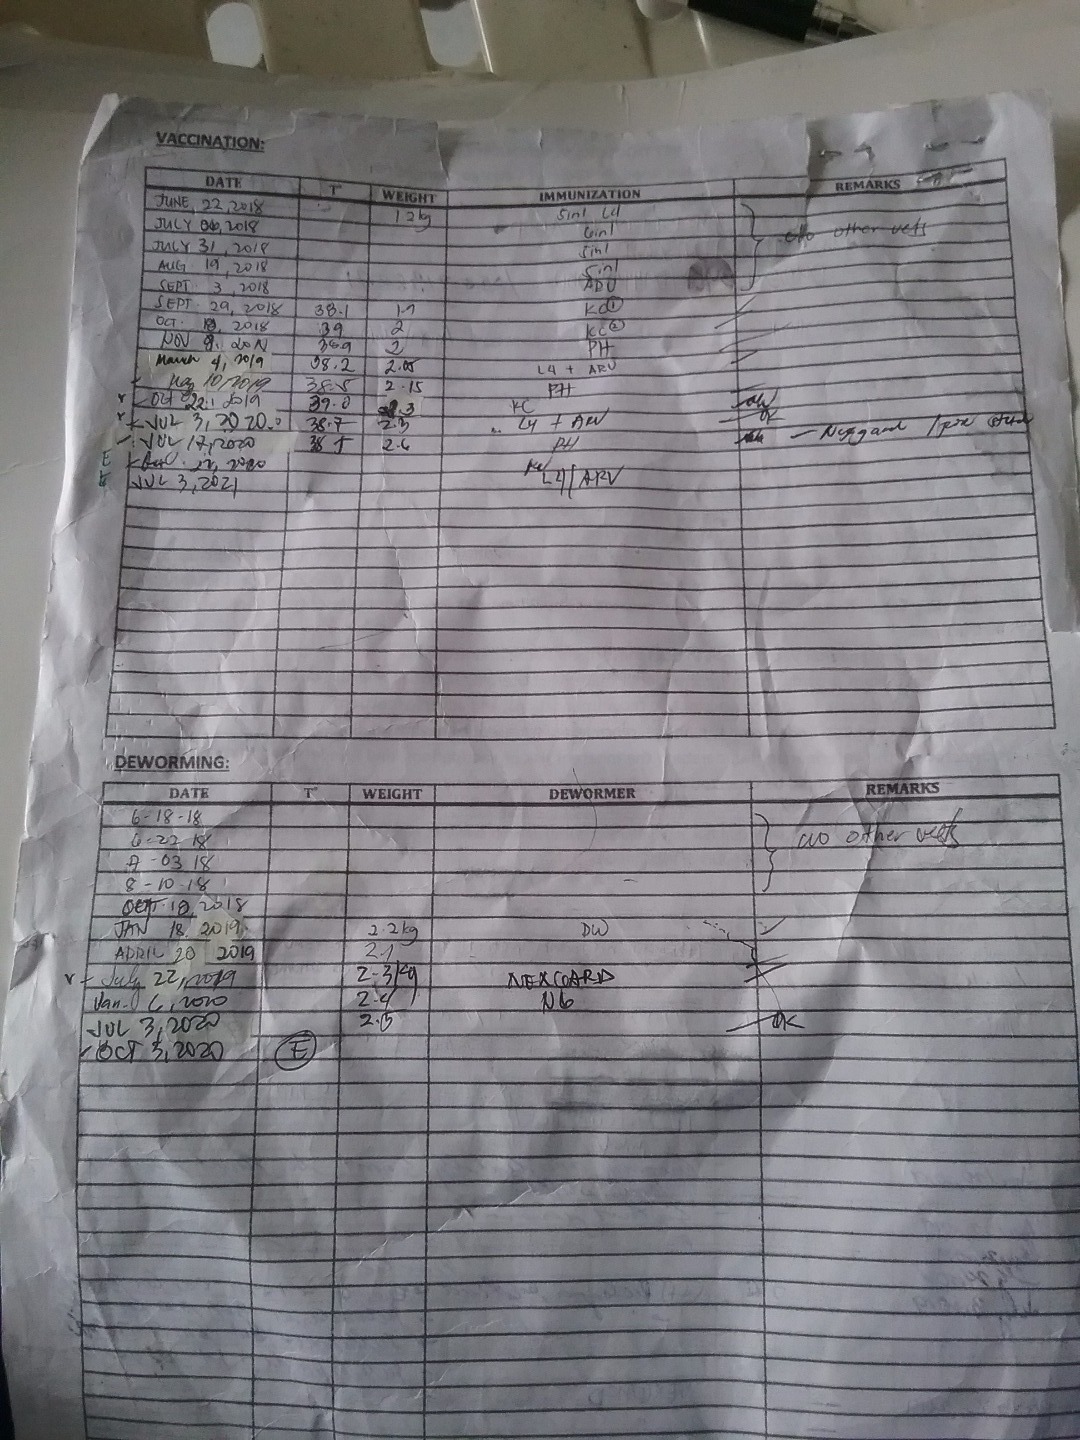 VACCINATION:
DATE T WEIGHT IMMUNIZATION REMARKS
JUNE, 22, 2018 1.2kg 5in1 L4
JULY 06, 2018 6in1 c/o other vets
JULY 31, 2018 5in1
AUG 19, 2018 5in1
SEPT. 3, 2018 ARV
SEPT. 29, 2018 38.1 1.7 KC①
OCT. 2018 39 2 KC②
NOV 9, 38.9 2 PH
March 4, 2019 38.2 2.05 L4 + ARV
10, 2019 38.5 2.15 PH
OCT 22, 2019 39.0 2.3 KC ok
JUL 3, 2020 38.7 2.5 L4 + ARV ok
JUL 17, 2020 2.6 PH Nexgard
E 22, 2020 KC
E JUL 3, 2021 L4/ARV
DEWORMING:
DATE T WEIGHT DEWORMER REMARKS
6-18-18
6-22-18 c/o other vets
7-03-18
8-10-18
OCT. 10, 2018
JAN 18, 2019 2.2kg DW
APRIL 20 2019 2.1
July 22, 2019 2.3kg NEXGARD
Jan. 6, 2020 2.4 NG
JUL 3, 2020 2.5 OK
OCT 3, 2020 E